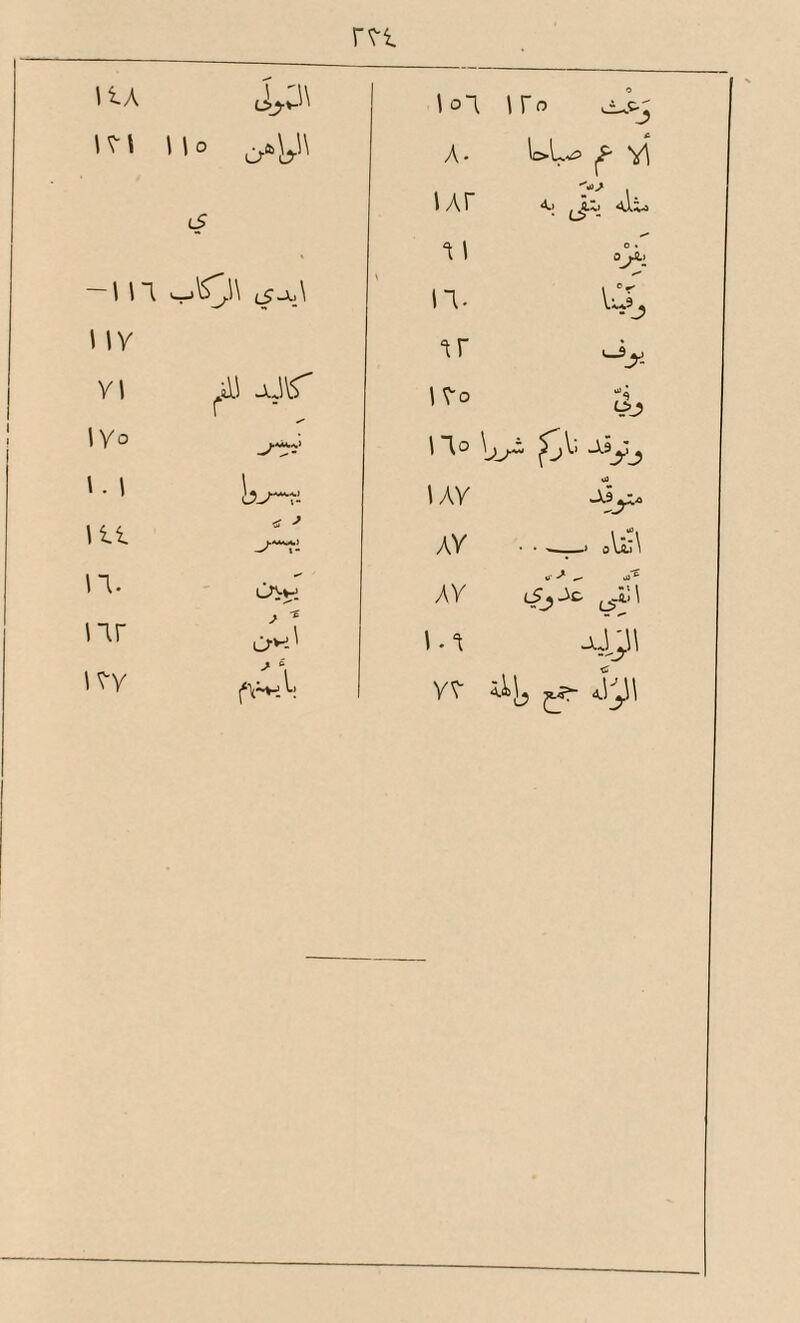 ٢٣٤
وَعْث ١٢٥ ١٥٦
ألا عم صباحا ٨٠
مثله به ١٨٢
يَفِرْه ٩١
وَفَيْنا ١٦٠
يوف ٩٢
وفيّ ١٣٥
وتوقد ناركم شررا ١٦٥
متوقّد ١٨٧
اتّقاه بـــ . . ٨٧
اتّقي عدوّي ٨٧
الوليد ١٠٩
الوُلّه جمع والهة ٧٣
المولى ١٤٨
الواهن ١١٥ ١٣١
ي
ايدي الركاب ١١٦–
١١٧
كاليد للفم ٧١
تيسر ١٧٥
ييسروا ١٠١
ييسّر ١٤٤
يمين ١٦٠
ايمن ١٦٢
بأيمنهم ١٣٧